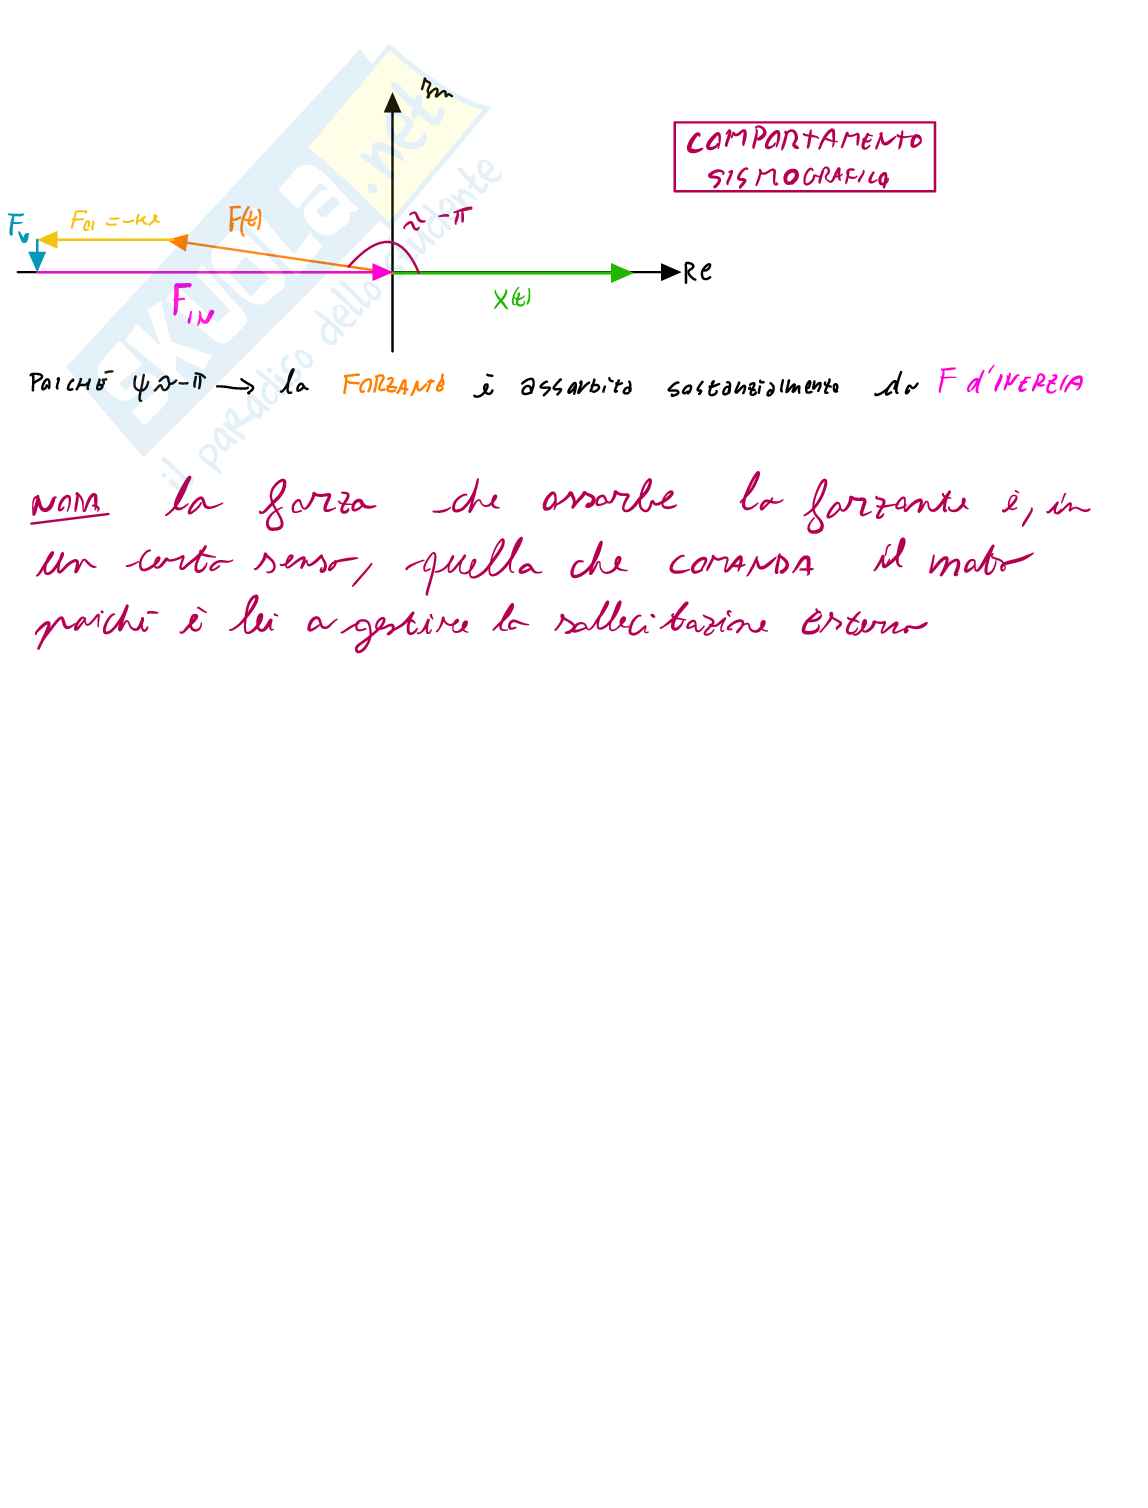 Im
COMPORTAMENTO
SISMOGRAFICO
≈ -π
Fv
Fel = -kx
F(t)
Re
FIN
X(t)
POICHÉ ψ ≈ -π → la FORZANTE è assorbita sostanzialmente da F d'INERZIA
NOTA la forza che assorbe la forzante è, in
un certo senso, quella che COMANDA il moto
poiché è lei a gestire la sollecitazione esterna
SKUOLA.net
il paradiso dello studente